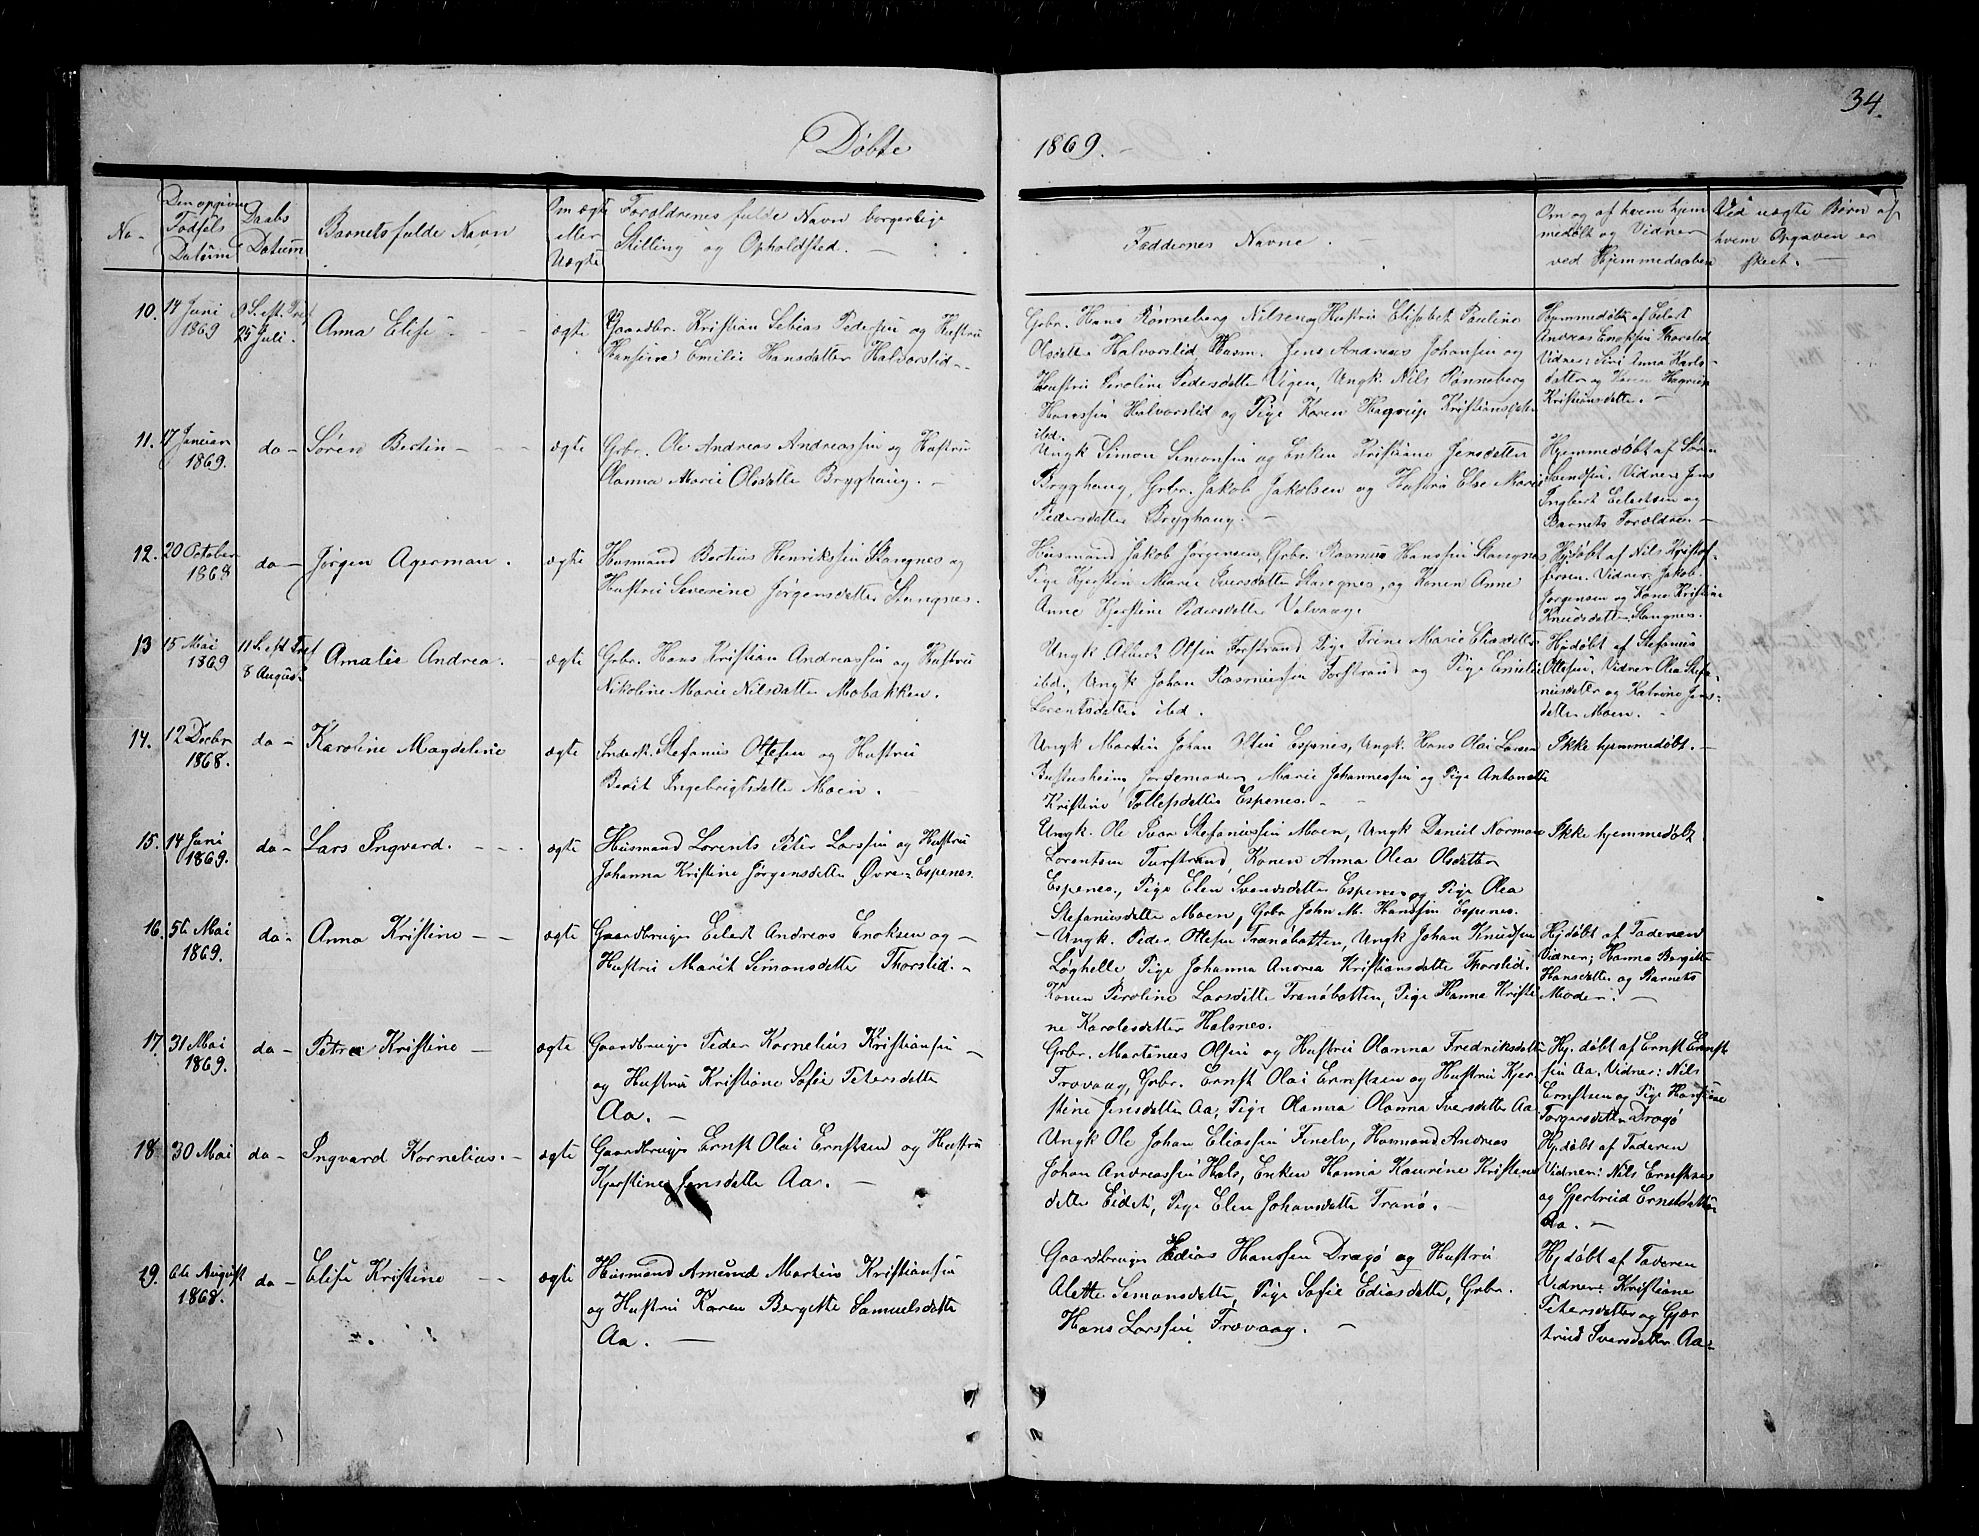 34.
Døbte 1869.
No-
Den opgivne Fødsels Datum
Daabs Datum
Barnets fulde Navn
Om ægte eller Uægte
Forældrenes fulde Navn borgerlige Stilling og Opholdsted.
Faddernes Navne.
Om og af hvem hjemmedøbt og Vidner ved Hjemmedaaben
Ved uægte Børn af hvem Opgaven er skeet.
10. 14 Juni 1869
25 Juli
Anna Elise
ægte
Gaardbr. Kristian Sebias Pedersen og Hustru
Hansine Emilie Hansdatter Halvorslid
Gbr. Hans Rønneberg Nilsen og Hustru Elisabet Pauline
Olsdatter Halvorslid, Husm. Jens Andreas Johansen og
Hustru Peroline Pedersdatter Vigen, Ungk. Nils Rønneberg
Hanssen Halvorslid og Pige Karen Hagrup Kristiansdatter
ibd.
Hjemmedøbt af Eilert
Andreas Enoksen Thorslid
Vidner: Anna Karls-
datter og Karen Hagrup
Kristiansdatter.
11. 17 Januar 1869.
do
Søren Bertin
ægte
Grbr. Ole Andreas Andreassen og Hustru
Olanna Marie Olsdatter Bryghaug.
Ungk Simon Simonsen og Enken Kristiane Jensdatter
Bryghaug, Grbr. Jakob Jakobsen og Hustru Else Marie
Pedersdatter Bryghaug.
Hjemmedøbt af Søren
Svendsen. Vidner Jens
Ingbert Eilertsen og
Barnets Forældre
12. 20 October 1868
do
Jørgen Agerman.
ægte
Husmand Bertius Henriksen Stangnes og
Hustru Severine Jørgensdatter Stangnes.
Husmand Jakob Jørgensen, Grbr. Rasmus Hanssen Stangnes
Pige Kjerstin Marie Iversdatter Stangnes, og Konen Anne
Anne Kjerstine Pedersdatter Valvaag.
Hjdøbt af Nils Kristof-
fersen. Vidner Jakob
Jørgensen og Kone Kristine
Knudsdatter Stangnes.
13 15 Mai 1869
11 S. eft Tref 8 August
Amalie Andrea.
ægte
Grbr. Hans Kristian Andreassen og Hustru
Nikoline Marie Nilsdatter Mobakken.
Ungk. Albert Olsen Forstrand Pige Trine Marie Eliasdatter
ibd., Ungk Johan Rasmussen Forstrand og Pige Emilie
Lorentsdatter ibd.
Hjdøbt af Stefanus
Ottesen. Vidner Olea Stefa-
nusdatter og Katrine Jens-
datter Moen.
14. 12 Decbr 1868.
do
Karoline Magdeline
ægte
Inderst. Stefanus Ottesen og Hustru
Berit Ingebrigtsdatter Moen.
Ungk Martin Johan Olsen Espenes, Ungk. Hans Olai Larsen
Jordemoder Marie Johannessen og Pige Antonette
Kristine Tollefsdatter Espenes.
Ikke hjemmedøbt.
15. 14 Juni 1869.
do
Lars Ingvard.
ægte
Husmand Lorents Peter Larssen og Hustru
Johanna Kristine Jørgensdatter Øvre-Espenes.
Ungk. Ole Ivar Stefanussen Moen, Ungk Daniel Norman
Lorentsen Forstrand, Konen Anna Olea Olsdatter
Espenes, Pige Elen Svendsdatter Espenes og Pige Olea
Stefanusdatter Moen, Grbr John M. Hanssen Espenes.
Ikke hjemmedøbt
16. 5te Mai 1869.
do
Anna Kristine
ægte
Gaardbruger Eilert Andreas Enoksen og
Hustru Marit Simonsdatter Thorslid.
Ungk. Peder Ottesen Tranøbotten, Ungk Johan Knudsen
Løghelle Pige Johanna Andrea Kristiansdatter Thorslid.
Konen Peroline Larsdatter Tranøbotten, Pige Hanna Kristi-
ne Karolesdatter Halsnes.
Hjdøbt af Faderen
Vidner; Hanna Bergitte
Hansdatter og Barnets
Moder.
17. 31 Mai 1869.
do
Petra Kristine
ægte
Gaardbruger Peder Kornelius Kristiansen
og Hustru Kristiane Sofie Petersdatter
Aa.
Grbr. Martinus Olsen og Hustru Olanna Fredriksdatter
Trovaag, Grbr. Ernst Olai Ernstsen og Hustru Kjer-
stine Jensdatter Aa, Pige Olanna Olanna Iversdatter Aa
Hj. døbt af Ernst Ernst-
sen Aa. Vidner: Nils
Ernstsen og Pige Hansine
Torgersdatter Dragø
18 30 Mai
do
Ingvard Kornelius.
ægte
Gaardbruger Ernst Olai Ernstsen og Hustru
Kjerstine Jensdatter Aa.
Ungk Ole Johan Eliassen Finelv, Husmand Andreas
Johan Andreassen Hals, Enken Hanna Kaurine Kristens
datter Eidet, Pige Elen Johansdatter Tranø.
Hjdøbt af Faderen
Vidner: Nils Ernstsen
og Gjertrud Ernstdatter
Aa.
19. 6te August 1868.
do
Elise Kristine
ægte
Husmand Amund Martin Kristiansen
og Hustru Karen Bergette Samuelsdatter
Aa.
Gaardbruger Edias Hanssen Dragø og Hustru
Alette Simonsdatter, Pige Sofie Ediasdatter, Grbr.
Hans Larssen Trovaag.
Hjdøbt af Faderen
Vidner: Kristiane
Petersdatter og Gjær
trud Iversdatter Aa